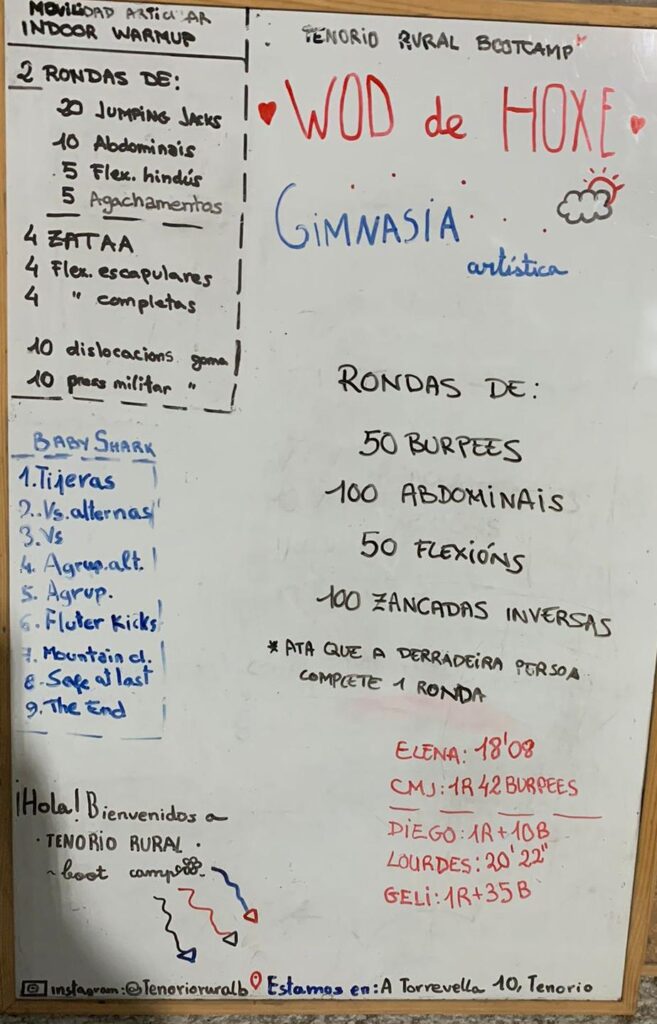 MOVILIDAD ARTICULAR
INDOOR WARMUP
2 RONDAS DE:
20 JUMPING JACKS
10 Abdominais
5 Flex. hindús
5 Agachamentos
4 ZATAA
4 Flex. escapulares
4 " completas
10 dislocacions goma
10 press militar "
BABY SHARK
1. Tijeras
2. Vs. alternas
3. Vs
4. Agrup. alt.
5. Agrup.
6. Fluter Kicks
7. Mountain cl.
8. Safe at last
9. The End
¡Hola! Bienvenidos a
· TENORIO RURAL ·
~ boot camp
TENORIO RURAL BOOTCAMP
WOD de HOXE
GIMNASIA
artística
RONDAS DE:
50 BURPEES
100 ABDOMINAIS
50 FLEXIÓNS
100 ZANCADAS INVERSAS
* ATA QUE A DERRADEIRA PERSOA
COMPLETE 1 RONDA
ELENA: 18'08
CMJ: 1R 42 BURPEES
DIEGO: 1R + 10B
LOURDES: 20'22"
GELI: 1R + 35B
instagram: @Tenorioruralb Estamos en: A Torrevella 10, Tenorio